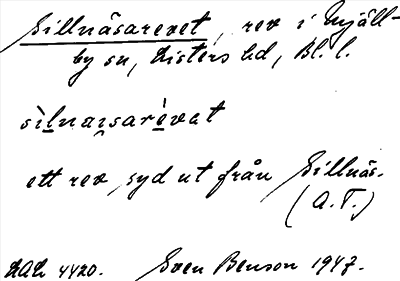 Sillnäsarevet, rev i Mjäll-
by sn, Listers hd, Bl. l.
sìlnaısarèvat
ett rev syd ut från Sillnäs.
(A.T.)
LAL 4420. Sven Benson 1947.